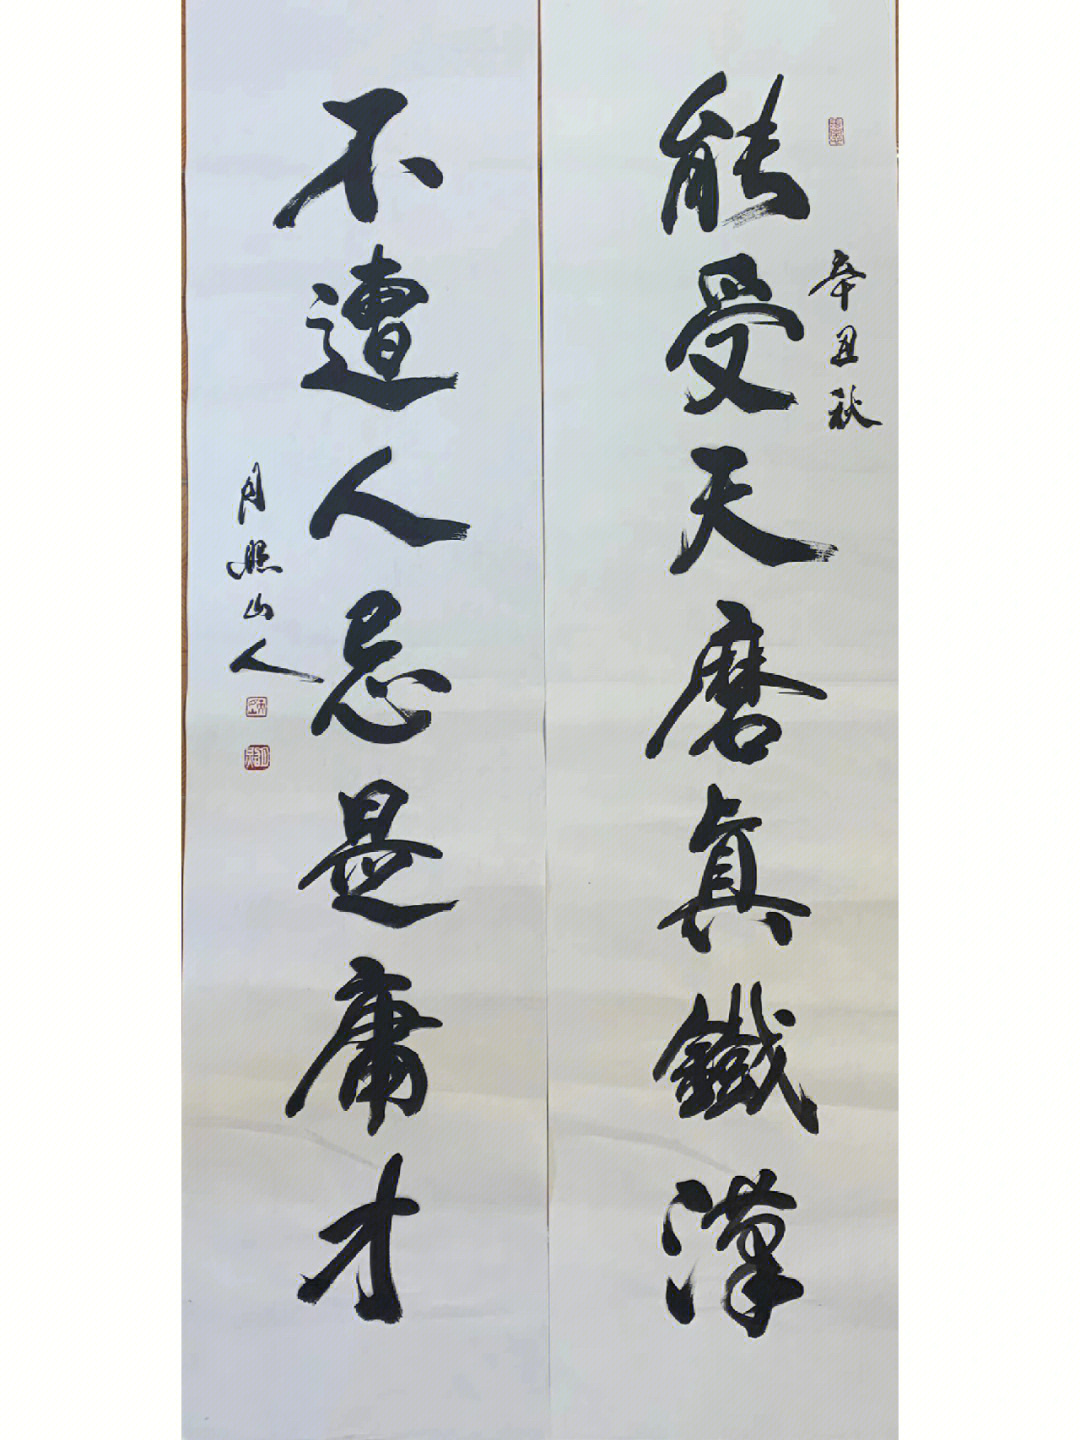 辛丑秋
能受天磨真鐵漢
不遭人忌是庸才
月照山人